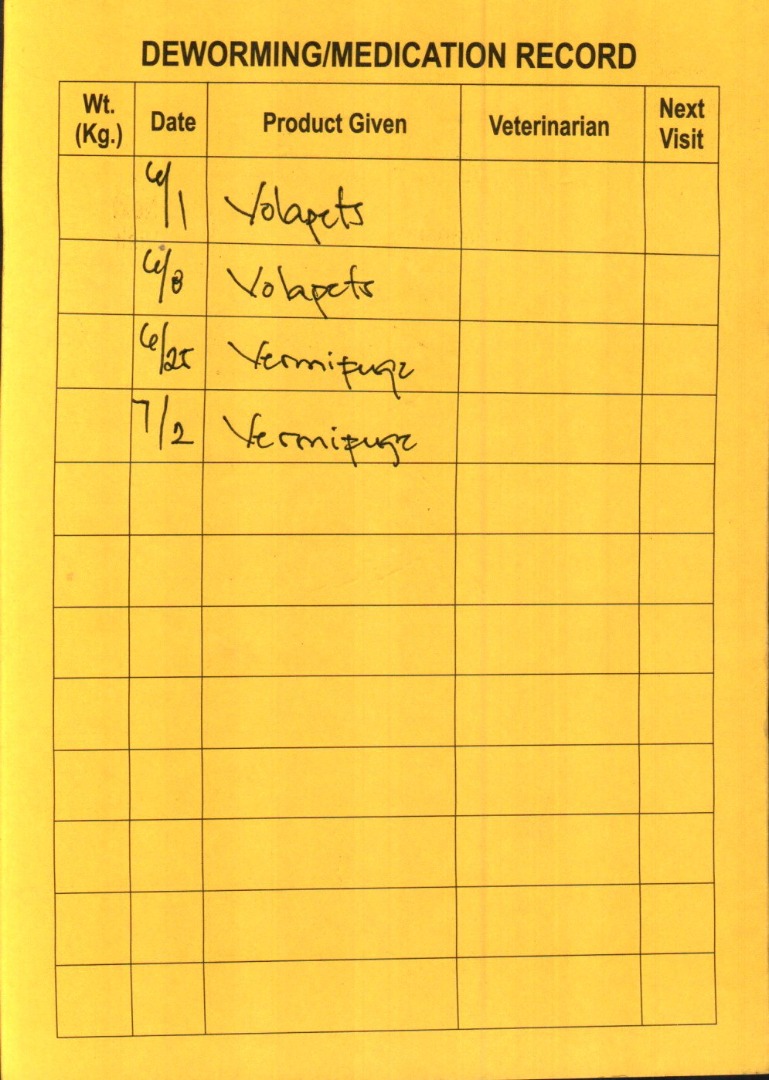 DEWORMING/MEDICATION RECORD
Wt. (Kg.) Date Product Given Veterinarian Next Visit
6/1 Volapets
6/8 Volapets
6/25 Vermifuge
7/2 Vermifuge